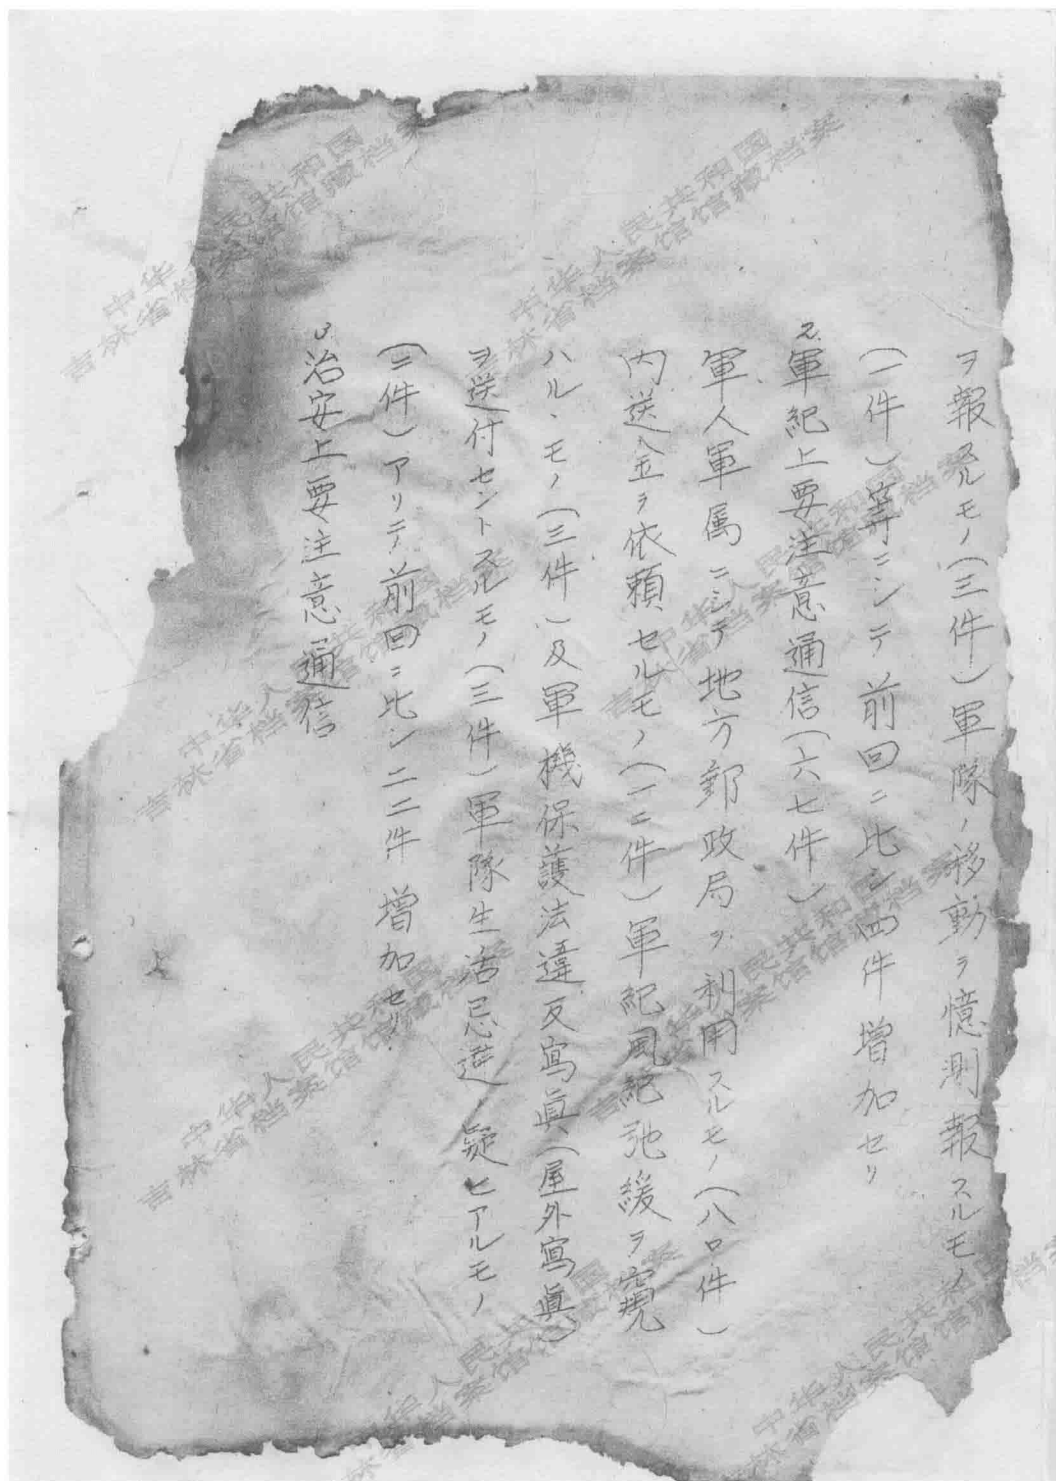 ヲ報スルモノ(三件)軍隊ノ移動ヲ憶測報スルモノ
(一件)等ニシテ前回ニ比シ四件増加セリ
2.軍紀上要注意通信(六七件)
軍人軍属ニシテ地方郵政局ヲ利用スルモノ(八〇件)
内送金ヲ依頼セルモノ(一二件)軍紀風紀弛緩ヲ窺
ハルヽモノ(三件)及軍機保護法違反寫眞(屋外寫眞)
ヲ送付セントスルモノ(三件)軍隊生活忌避ノ疑ヒアルモノ
(二件)アリテ前回ニ比シ二二件増加セリ
3.治安上要注意通信
中华人民共和国
吉林省档案馆馆藏档案